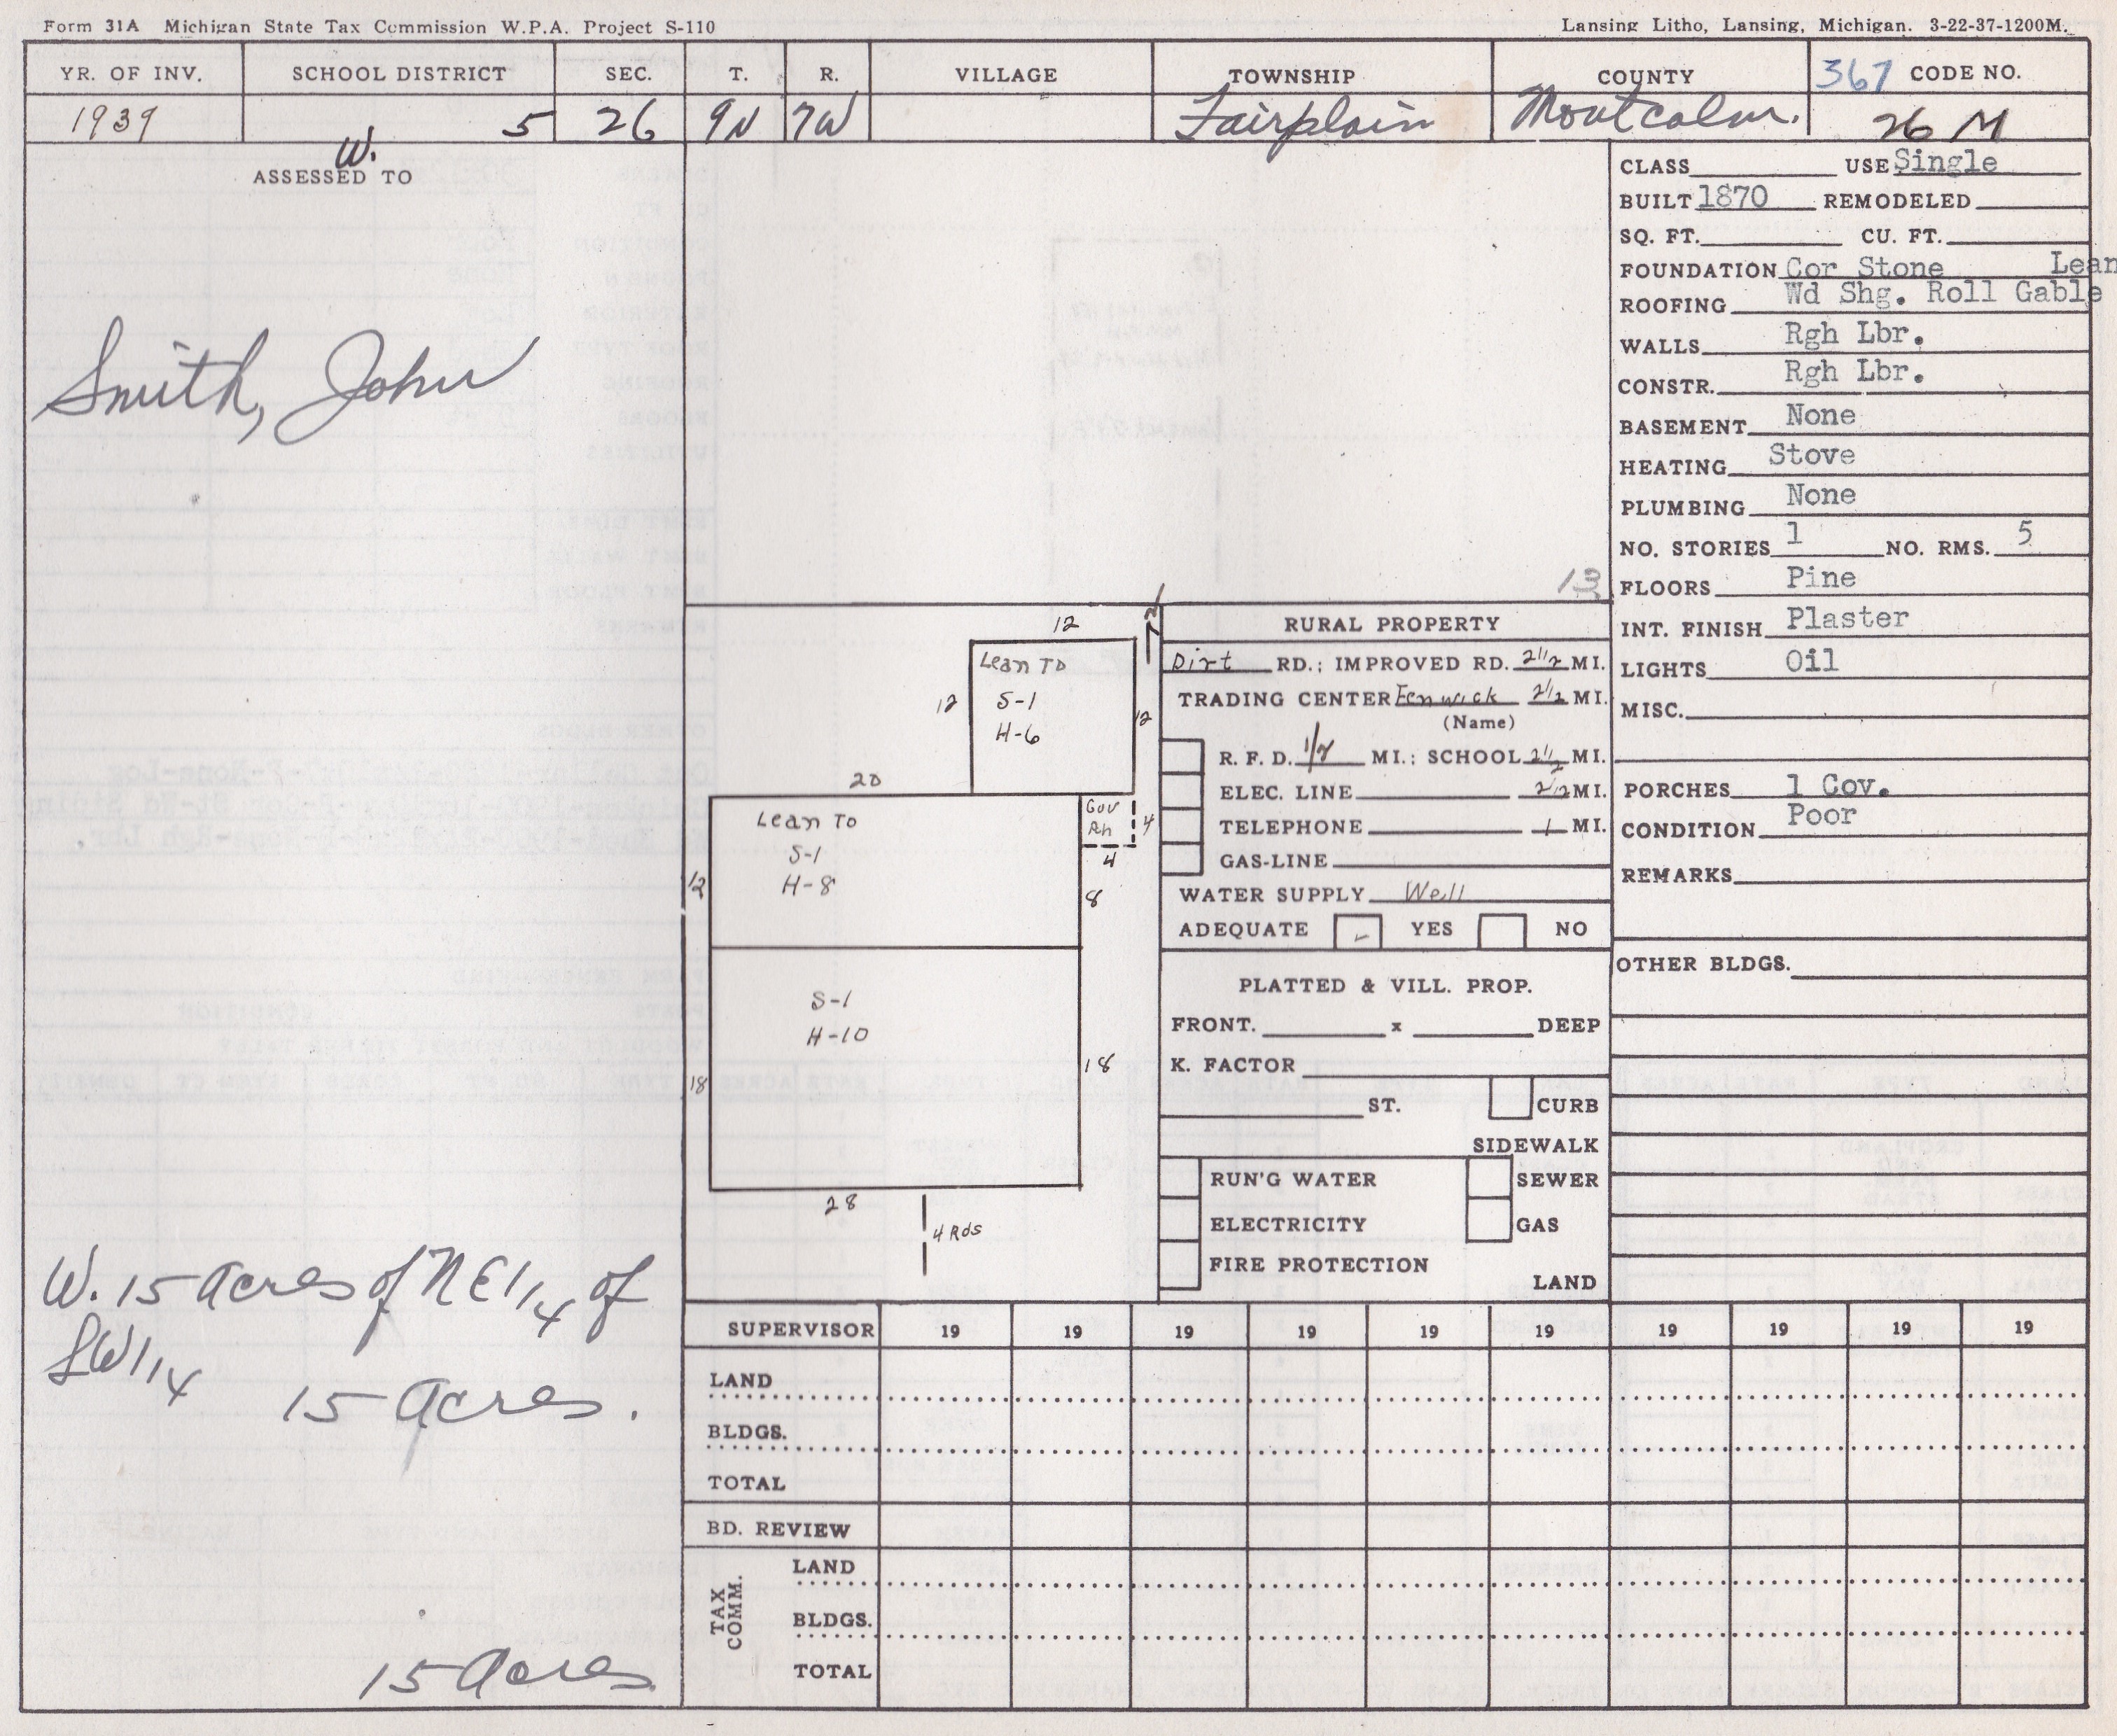 Form 31A Michigan State Tax Commission W.P.A. Project S-110
Lansing Litho, Lansing, Michigan. 3-22-37-1200M.
YR. OF INV. SCHOOL DISTRICT SEC. T. R. VILLAGE TOWNSHIP COUNTY 367 CODE NO.
1939 5 26 9N 7W Fairplain Montcalm. 26 M
W.
ASSESSED TO
Smith, John
W. 15 acres of NE1/4 of
SW1/4
15 acres.
15 acres
13
N
12
Lean To
S-1
H-6
12
12
20
Lean To
S-1
H-8
Cov
Ph
4
4
12
8
S-1
H-10
18
18
28
4 Rds
RURAL PROPERTY
Dirt RD.; IMPROVED RD. 2 1/2 MI.
TRADING CENTER Fenwick 2 1/2 MI.
(Name)
R. F. D. 1/2 MI.; SCHOOL 2 1/2 MI.
ELEC. LINE 2 1/2 MI.
TELEPHONE 1 MI.
GAS-LINE
WATER SUPPLY Well
ADEQUATE YES NO
PLATTED & VILL. PROP.
FRONT. x DEEP
K. FACTOR
ST. CURB
SIDEWALK
RUN'G WATER SEWER
ELECTRICITY GAS
FIRE PROTECTION
LAND
CLASS USE Single
BUILT 1870 REMODELED
SQ. FT. CU. FT.
FOUNDATION Cor Stone Lean
ROOFING Wd Shg. Roll Gable
WALLS Rgh Lbr.
CONSTR. Rgh Lbr.
BASEMENT None
HEATING Stove
PLUMBING None
NO. STORIES 1 NO. RMS. 5
FLOORS Pine
INT. FINISH Plaster
LIGHTS Oil
MISC.
PORCHES 1 Cov.
CONDITION Poor
REMARKS
OTHER BLDGS.
SUPERVISOR 19 19 19 19 19 19 19 19 19 19
LAND
BLDGS.
TOTAL
BD. REVIEW
TAX COMM.
LAND
BLDGS.
TOTAL